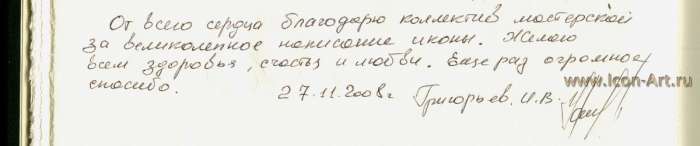 От всего сердца благодарю коллектив мастерской
за великолепное написание иконы. Желаю
всем здоровья, счастья и любви. Еще раз огромное
спасибо. 27.11.2008г Григорьев, И.В.
www.Icon-Art.ru